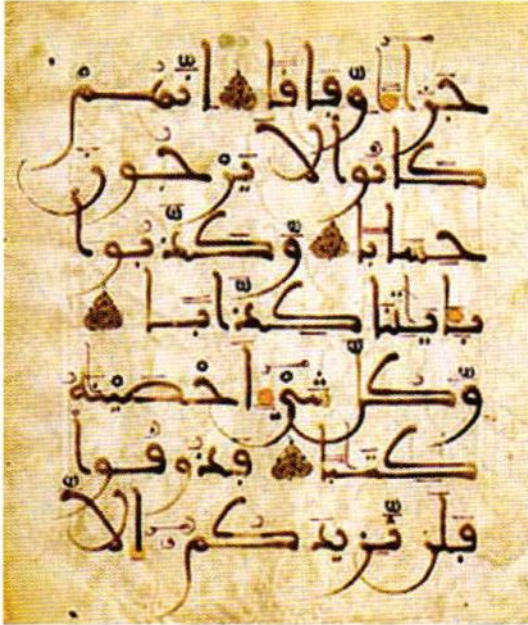 جَزَآءً وِّفَاقًا اِنَّهُمْ
كَانُوا لَا يَرْجُونَ
حِسَابًا وَّكَذَّبُوا
بِـَٔايَٰتِنَا كِذَّابًا
وَّكُلَّ شَيْءٍ اَحْصَيْنَٰهُ
كِتَٰبًا فَذُوقُوا
فَلَن نَّزِيدَكُمْ اِلَّا